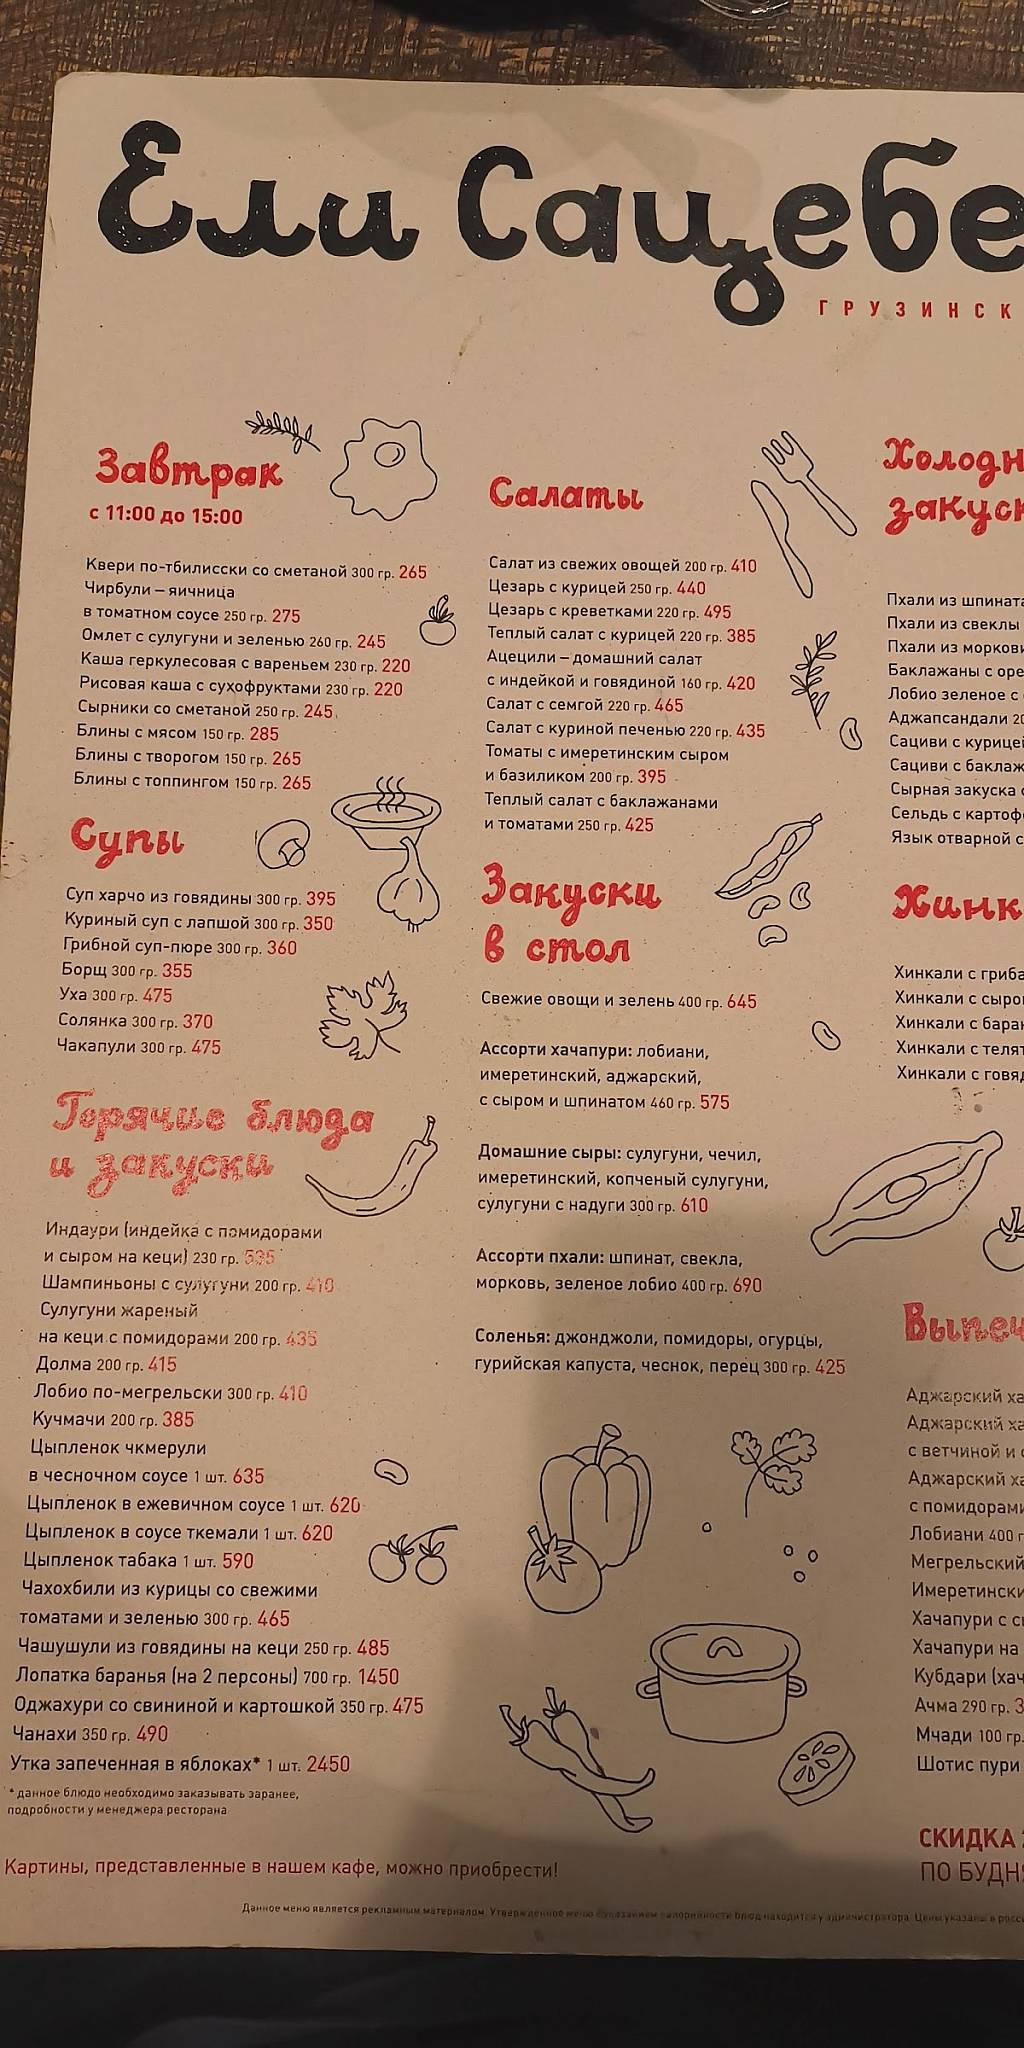 Ели Сацебе
ГРУЗИНСК
Завтрак
с 11:00 до 15:00
Квери по-тбилисски со сметаной 300 гр. 265
Чирбули – яичница
в томатном соусе 250 гр. 275
Омлет с сулугуни и зеленью 260 гр. 245
Каша геркулесовая с вареньем 230 гр. 220
Рисовая каша с сухофруктами 230 гр. 220
Сырники со сметаной 250 гр. 245
Блины с мясом 150 гр. 285
Блины с творогом 150 гр. 265
Блины с топпингом 150 гр. 265
Супы
Суп харчо из говядины 300 гр. 395
Куриный суп с лапшой 300 гр. 350
Грибной суп-пюре 300 гр. 360
Борщ 300 гр. 355
Уха 300 гр. 475
Солянка 300 гр. 370
Чакапули 300 гр. 475
Горячие блюда
и закуски
Индаури (индейка с помидорами
и сыром на кеци) 230 гр. 535
Шампиньоны с сулугуни 200 гр. 410
Сулугуни жареный
на кеци с помидорами 200 гр. 435
Долма 200 гр. 415
Лобио по-мегрельски 300 гр. 410
Кучмачи 200 гр. 385
Цыпленок чкмерули
в чесночном соусе 1 шт. 635
Цыпленок в ежевичном соусе 1 шт. 620
Цыпленок в соусе ткемали 1 шт. 620
Цыпленок табака 1 шт. 590
Чахохбили из курицы со свежими
томатами и зеленью 300 гр. 465
Чашушули из говядины на кеци 250 гр. 485
Лопатка баранья (на 2 персоны) 700 гр. 1450
Оджахури со свининой и картошкой 350 гр. 475
Чанахи 350 гр. 490
Утка запеченная в яблоках* 1 шт. 2450
* данное блюдо необходимо заказывать заранее,
подробности у менеджера ресторана
Картины, представленные в нашем кафе, можно приобрести!
Салаты
Салат из свежих овощей 200 гр. 410
Цезарь с курицей 250 гр. 440
Цезарь с креветками 220 гр. 495
Теплый салат с курицей 220 гр. 385
Ацецили – домашний салат
с индейкой и говядиной 160 гр. 420
Салат с семгой 220 гр. 465
Салат с куриной печенью 220 гр. 435
Томаты с имеретинским сыром
и базиликом 200 гр. 395
Теплый салат с баклажанами
и томатами 250 гр. 425
Закуски
в стол
Свежие овощи и зелень 400 гр. 645
Ассорти хачапури: лобиани,
имеретинский, аджарский,
с сыром и шпинатом 460 гр. 575
Домашние сыры: сулугуни, чечил,
имеретинский, копченый сулугуни,
сулугуни с надуги 300 гр. 610
Ассорти пхали: шпинат, свекла,
морковь, зеленое лобио 400 гр. 690
Соленья: джонджоли, помидоры, огурцы,
гурийская капуста, чеснок, перец 300 гр. 425
Холодн
закуск
Пхали из шпината
Пхали из свеклы
Пхали из моркови
Баклажаны с оре
Лобио зеленое с
Аджапсандали 20
Сациви с курицей
Сациви с баклаж
Сырная закуска с
Сельдь с картоф
Язык отварной с
Хинк
Хинкали с гриба
Хинкали с сыром
Хинкали с баран
Хинкали с телят
Хинкали с говяд
Выпеч
Аджарский ха
Аджарский ха
с ветчиной и с
Аджарский ха
с помидорами
Лобиани 400 г
Мегрельский
Имеретински
Хачапури с сы
Хачапури на
Кубдари (хач
Ачма 290 гр. 3
Мчади 100 гр.
Шотис пури
СКИДКА
ПО БУДН
Данное меню является рекламным материалом. Утвержденное меню с указанием калорийности блюд находится у администратора. Цены указаны в росс